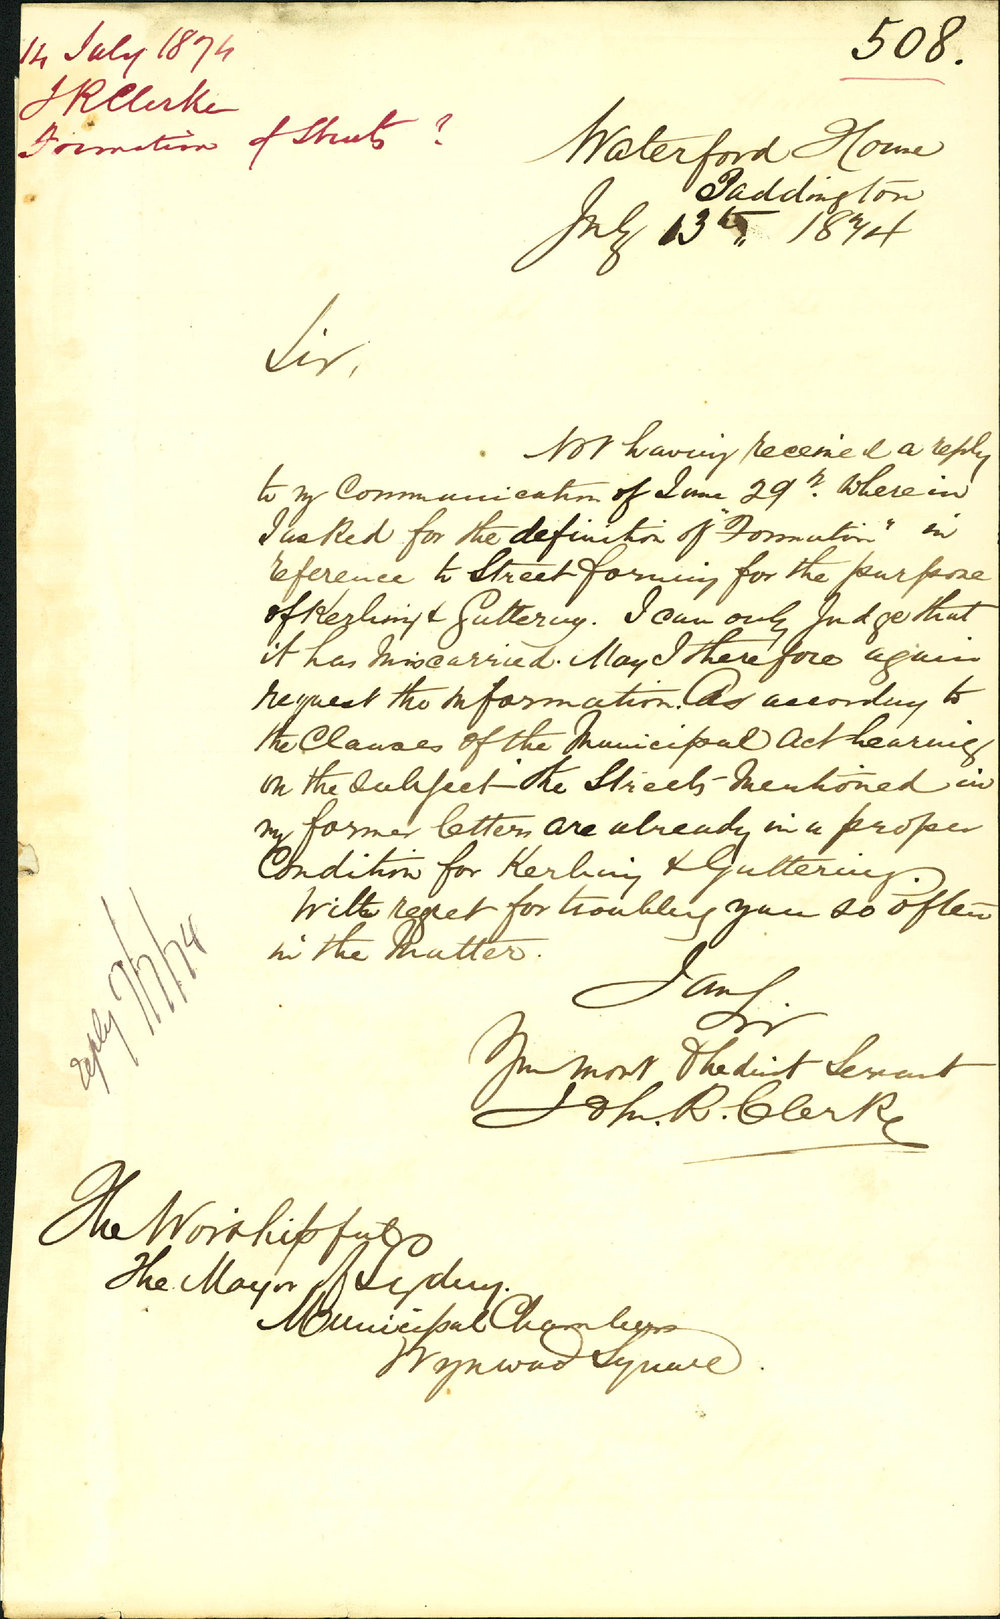 14 July 1874
J R Clerke
Formation of Streets ?
508.
Waterford House
Paddington
July 13th 1874
Sir,
Not having received a reply
to my Communication of June 29th. Wherein
I asked for the definition of "Formation" in
reference to Street forming for the purpose
of Kerbing & Guttering. I can only Judge that
it has Miscarried. May I therefore again
request the information. As according to
the Clauses of the Municipal Act bearing
on the subject the Streets Mentioned in
my former letters are already in a proper
Condition for Kerbing & Guttering.
With regret for troubling you so often
in the Matter.
I am
Sir
Your most Obedient Servant
John. R. Clerke
reply 7/7/74
The Worshipful
The Mayor of Sydney.
Municipal Chambers
Wynward Square.